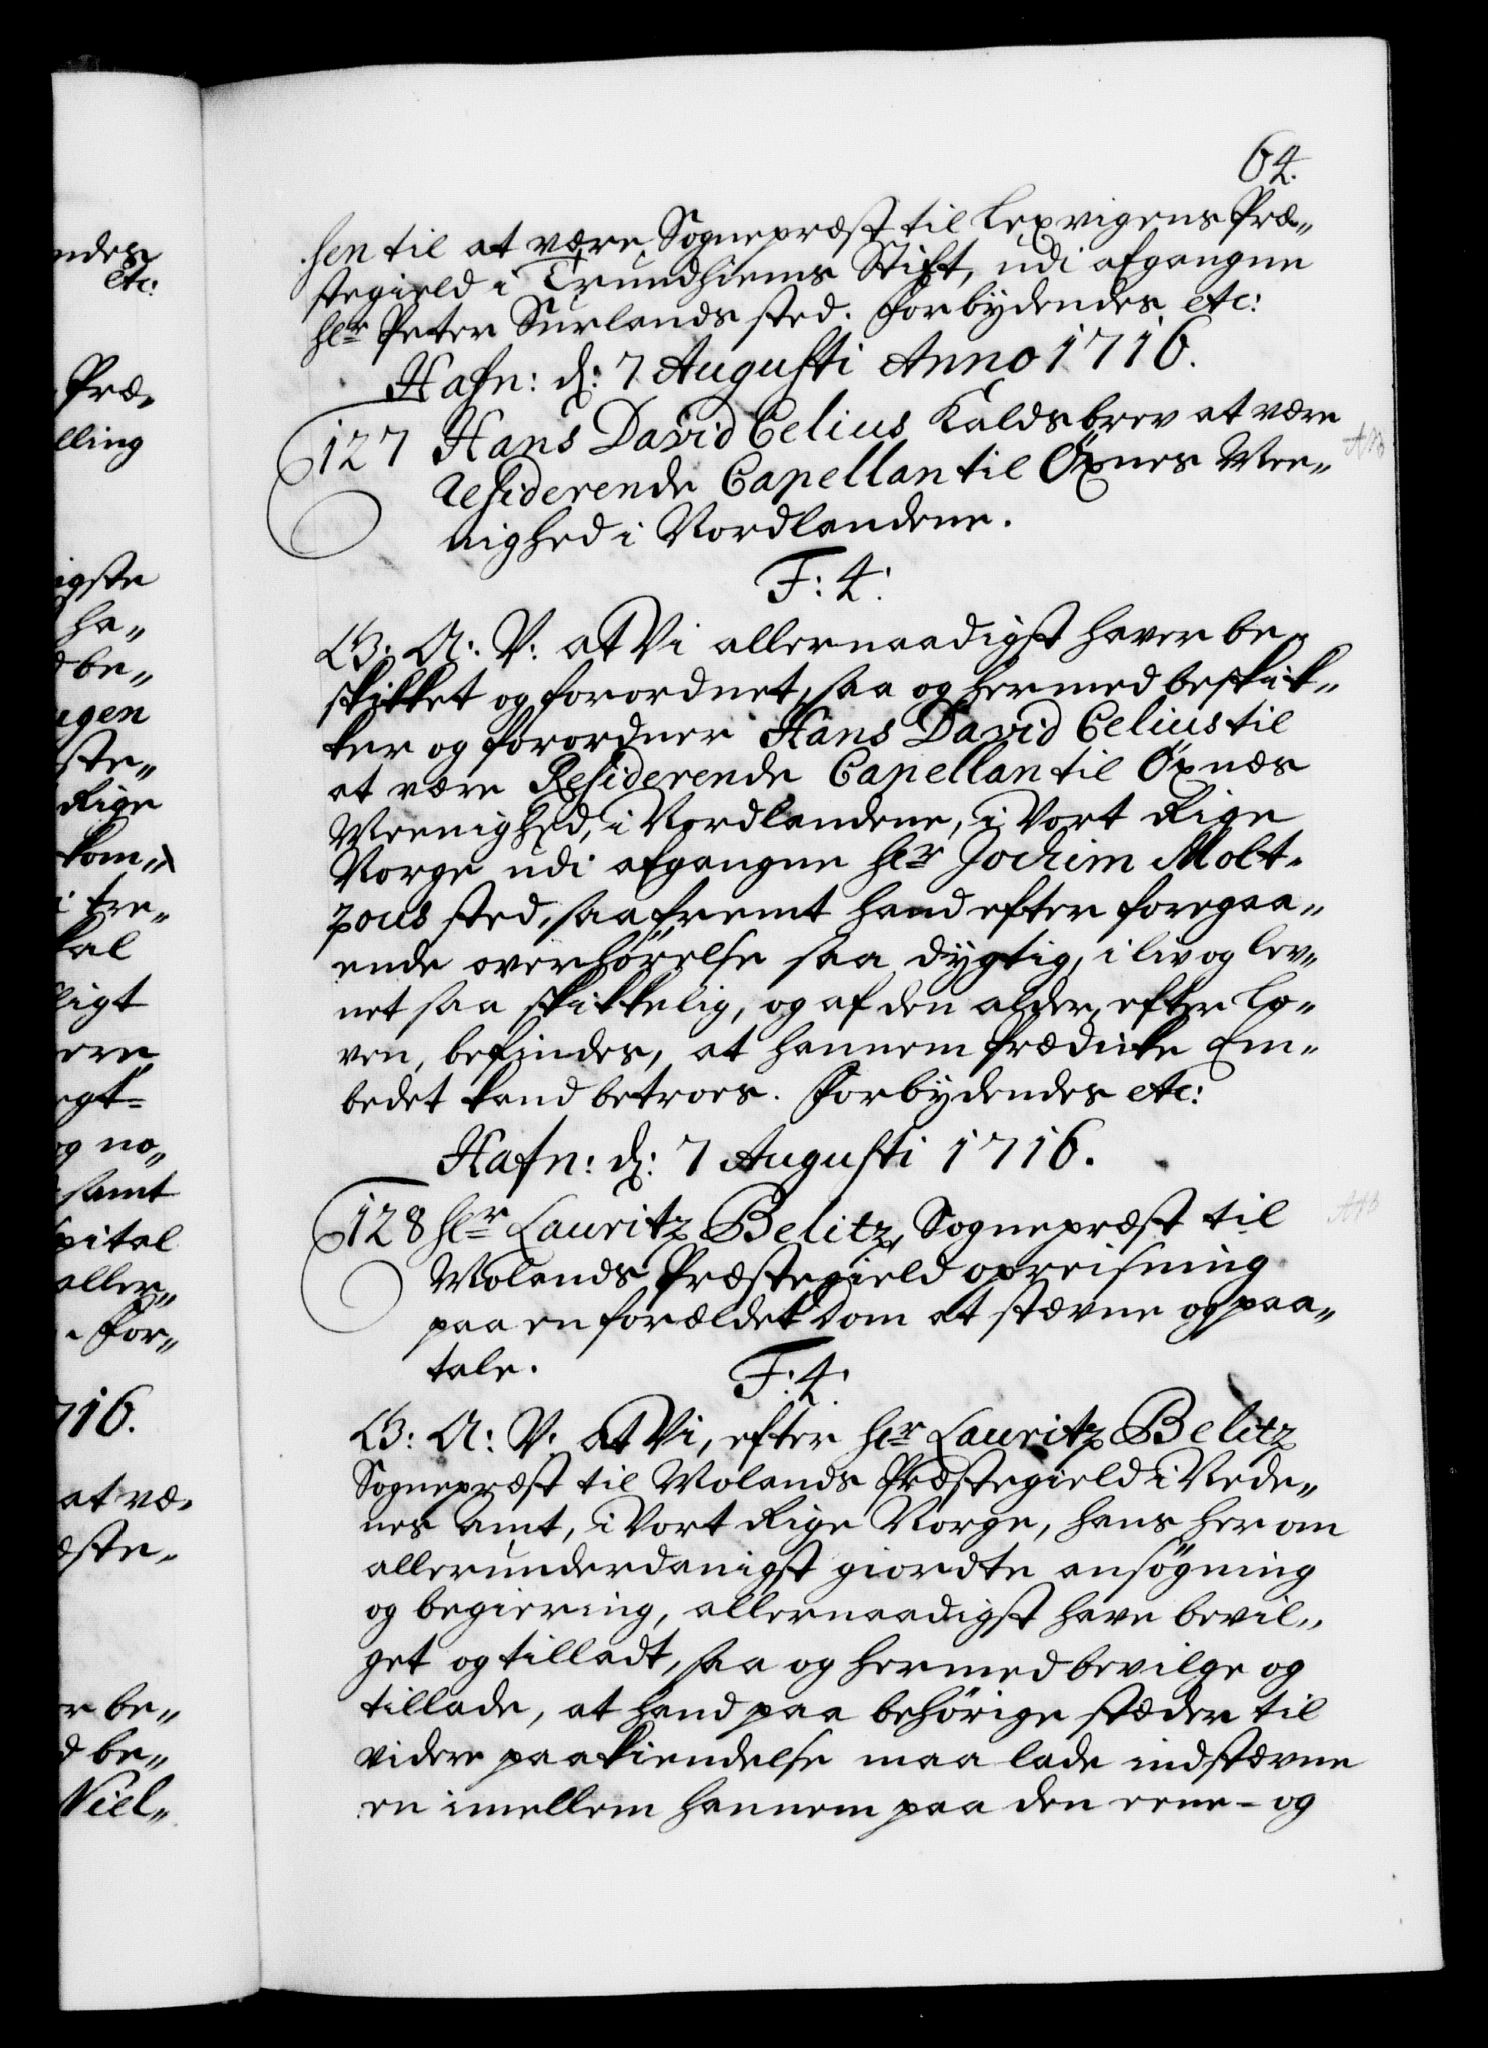 64.
sen til at være Sognepræst til Lexvigens Præ„
stegield i Trundhiems Stift, udi afgangne
Hr Peter Surlands sted. Forbydendes etc:
Hafn: d: 7 Augusti Anno 1716.
127 Hans David Celius Kaldsbrev at være
Residerende Capellan til Öxnes Mee„
nighed i Nordlandene.
F: 4:
G: A: V: at Vi allernaadigst haver be„
skikket og forordnet, saa og hermed beskik„
ker og forordner Hans David Celius til
at være Residerende Capellan til Öxnæs
Meenighed, i Nordlandene, i Vort Rige
Norge udi afgangne Hr Jochim Molt„
zous sted, saafremt hand efter foregaa„
ende overhörelse saa dygtig, i liv og lev„
net saa skikkelig, og af den alder, efter Lo„
ven, befindes, at hannem Prædicke Em„
bedet kand betroes. Forbydendes etc:
Hafn: d: 7 Augusti 1716.
128 Hr Lauritz Belitz, Sognepræst til
Molands Præstegield opreisning
paa en forældet Dom at stævne og paa„
tale.
F: 4:
G: A: V: at Vi, efter Hr Lauritz Belitz
Sogneprest til Molands Præstegield i Nede„
nes Amt, i Vort Rige Norge, hans herom
allerunderdanigst giordte ansögning
og begiering, allernaadigst have bevil„
get og tilladt, saa og hermed bevilge og
tillade, at hand paa behörige stæder til
videre paakiendelse maa lade indstævne
en imellem hannem paa den eene- og
ndes
etc:
Præ„
lling
igste
ha„
be„
igen
ste„
Rige
kom„
i tre„
kal
ligt
ere
egt„
og no„
samt
pital
aller„
For„
716.
at væ„
ste„
r be„
d be„
Niel„